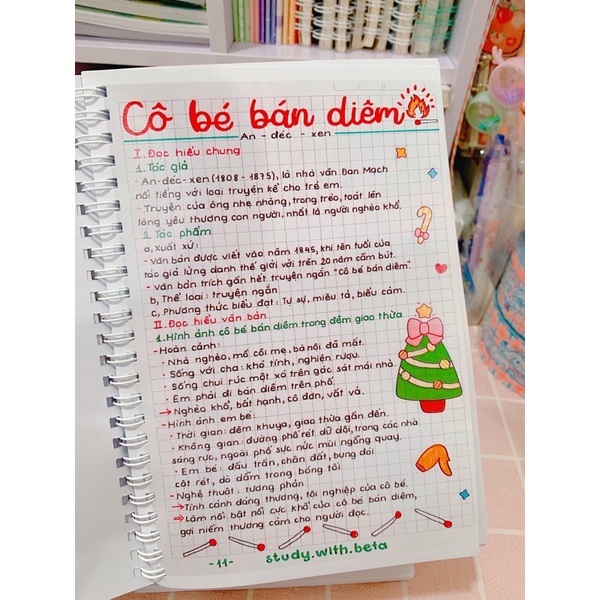 Cô bé bán diêm
An - đéc - xen
I. Đọc hiểu chung
1. Tác giả
- An-đéc-xen (1808 - 1875), là nhà văn Đan Mạch
nổi tiếng với loại truyện kể cho trẻ em.
- Truyện của ông nhẹ nhàng, trong trẻo, toát lên
lòng yêu thương con người, nhất là người nghèo khổ.
2. Tác phẩm
a, Xuất xứ:
- Văn bản được viết vào năm 1845, khi tên tuổi của
tác giả lừng danh thế giới với trên 20 năm cầm bút.
- Văn bản trích gần hết truyện ngắn "Cô bé bán diêm".
b, Thể loại: truyện ngắn
c, Phương thức biểu đạt: Tự sự, miêu tả, biểu cảm.
II. Đọc hiểu văn bản
1. Hình ảnh cô bé bán diêm trong đêm giao thừa
- Hoàn cảnh:
· Nhà nghèo, mồ côi mẹ, bà nội đã mất.
· Sống với cha: khó tính, nghiện rượu.
· Sống chui rúc một xó trên gác sát mái nhà
· Em phải đi bán diêm trên phố.
→ Nghèo khổ, bất hạnh, cô đơn, vất vả.
- Hình ảnh em bé:
· Thời gian: đêm khuya, giao thừa gần đến.
· Không gian: đường phố rét dữ dội, trong các nhà
sáng rực, ngoài phố sực nức mùi ngỗng quay.
· Em bé: đầu trần, chân đất, bụng đói
cật rét, dò dẫm trong bóng tối
- Nghệ thuật: tương phản
→ Tình cảnh đáng thương, tội nghiệp của cô bé.
⇒ Làm nổi bật nỗi cực khổ của cô bé bán diêm,
gợi niềm thương cảm cho người đọc.
- 11 -
study.with.beta